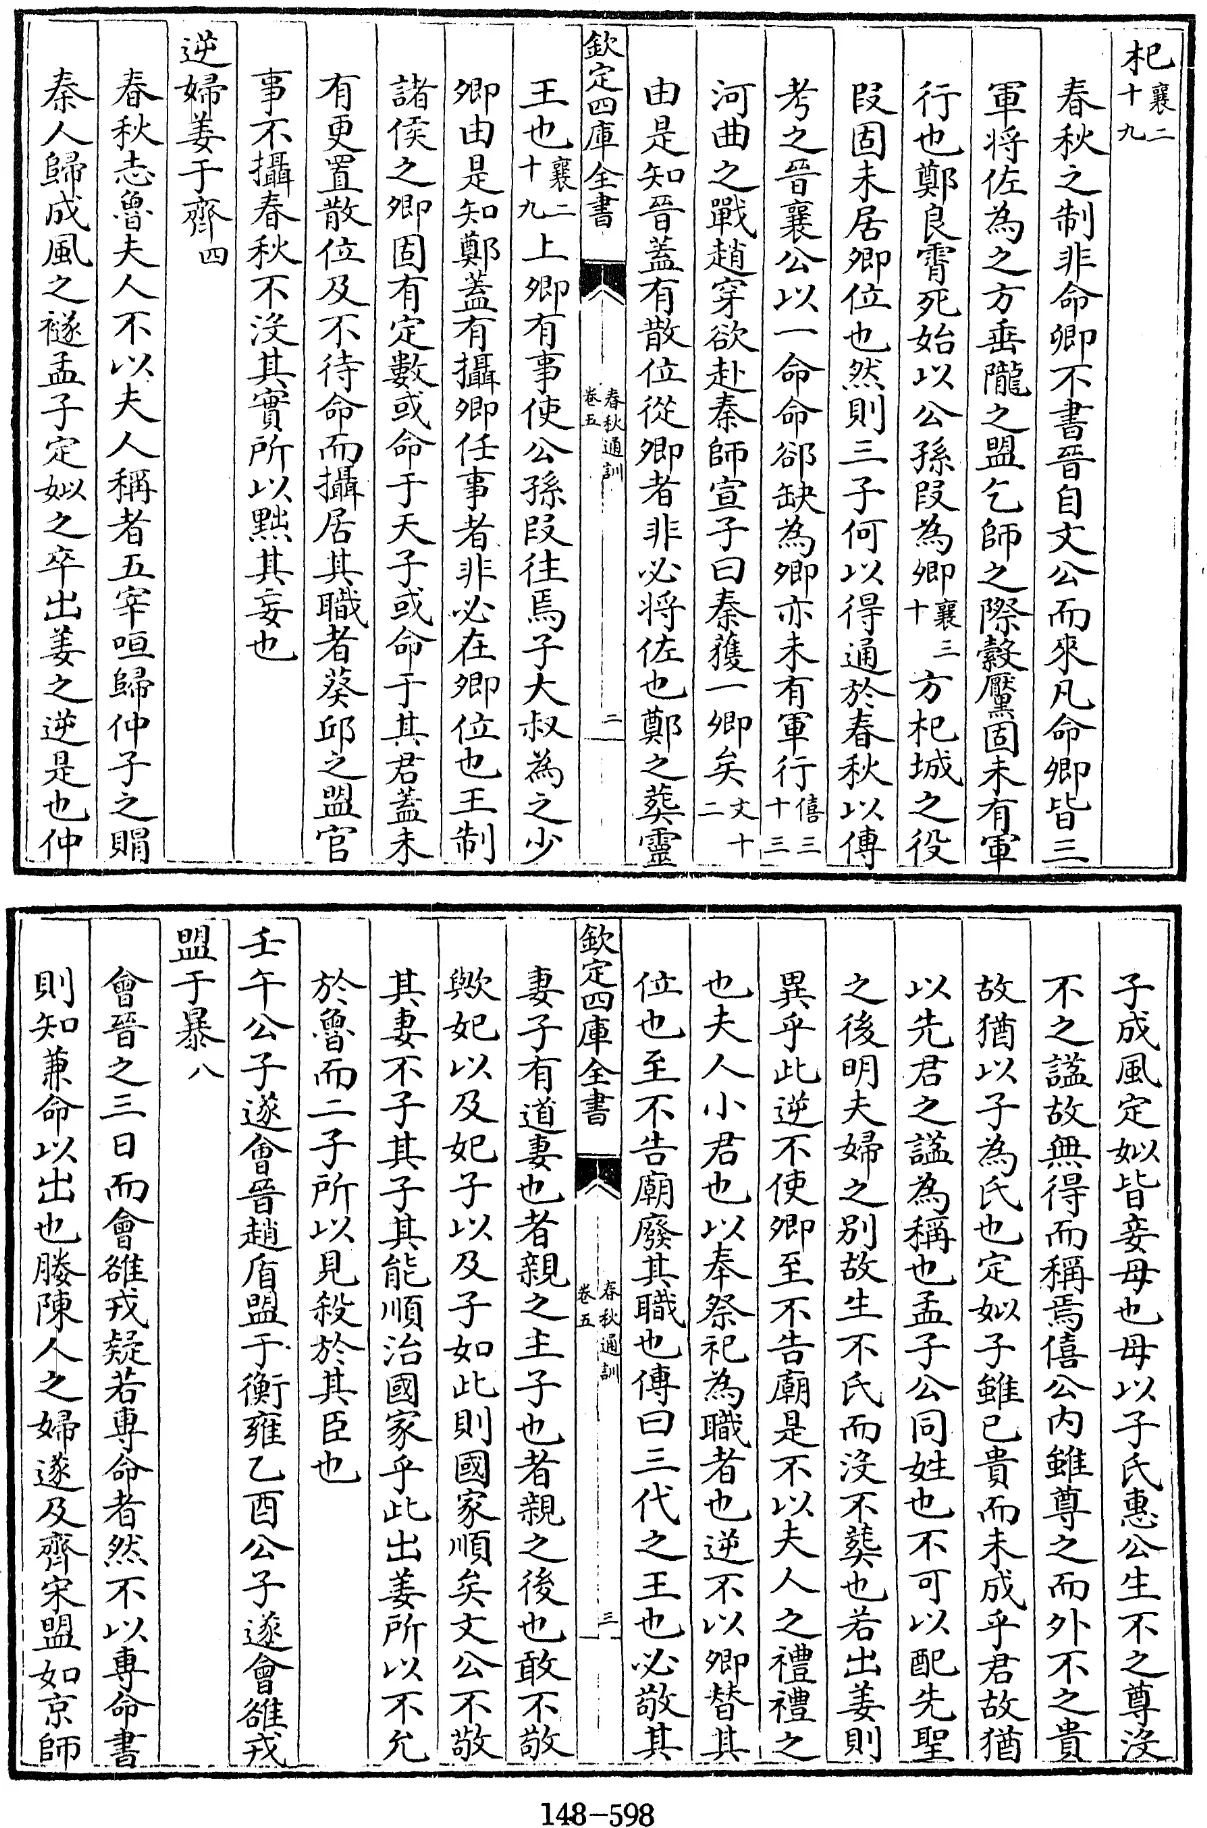 杞襄二十九
春秋之制非命卿不書晉自文公而來凡命卿皆三
軍將佐為之方垂隴之盟乞師之際縠黶固未有軍
行也鄭良霄死始以公孫段為卿襄三十方杞城之役
段固未居卿位也然則三子何以得通於春秋以傳
考之晉襄公以一命命郤缺為卿亦未有軍行僖三十三
河曲之戰趙穿欲赴秦師宣子曰秦獲一卿矣文十二
由是知晉蓋有散位從卿者非必將佐也鄭之葬靈
欽定四庫全書
春秋通訓
卷五
二
王也襄二十九上卿有事使公孫段往焉子大叔為之少
卿由是知鄭蓋有攝卿任事者非必在卿位也王制
諸侯之卿固有定數或命于天子或命于其君蓋未
有更置散位及不待命而攝居其職者葵邱之盟官
事不攝春秋不沒其實所以黜其妄也
逆婦姜于齊四
春秋志魯夫人不以夫人稱者五宰咺歸仲子之賵
秦人歸成風之襚孟子定姒之卒出姜之逆是也仲
子成風定姒皆妾母也母以子氏惠公生不之尊沒
不之諡故無得而稱焉僖公内雖尊之而外不之貴
故猶以子為氏也定姒子雖已貴而未成乎君故猶
以先君之諡為稱也孟子公同姓也不可以配先聖
之後明夫婦之别故生不氏而沒不葬也若出姜則
異乎此逆不使卿至不告廟是不以夫人之禮禮之
也夫人小君也以奉祭祀為職者也逆不以卿替其
位也至不告廟廢其職也傳曰三代之王也必敬其
欽定四庫全書
春秋通訓
卷五
三
妻子有道妻也者親之主子也者親之後也敢不敬
歟妃以及妃子以及子如此則國家順矣文公不敬
其妻不子其子其能順治國家乎此出姜所以不允
於魯而二子所以見殺於其臣也
壬午公子遂會晉趙盾盟于衡雍乙酉公子遂會雒戎
盟于暴八
會晉之三日而會雒戎疑若專命者然不以專命書
則知兼命以出也媵陳人之婦遂及齊宋盟如京師
148-598